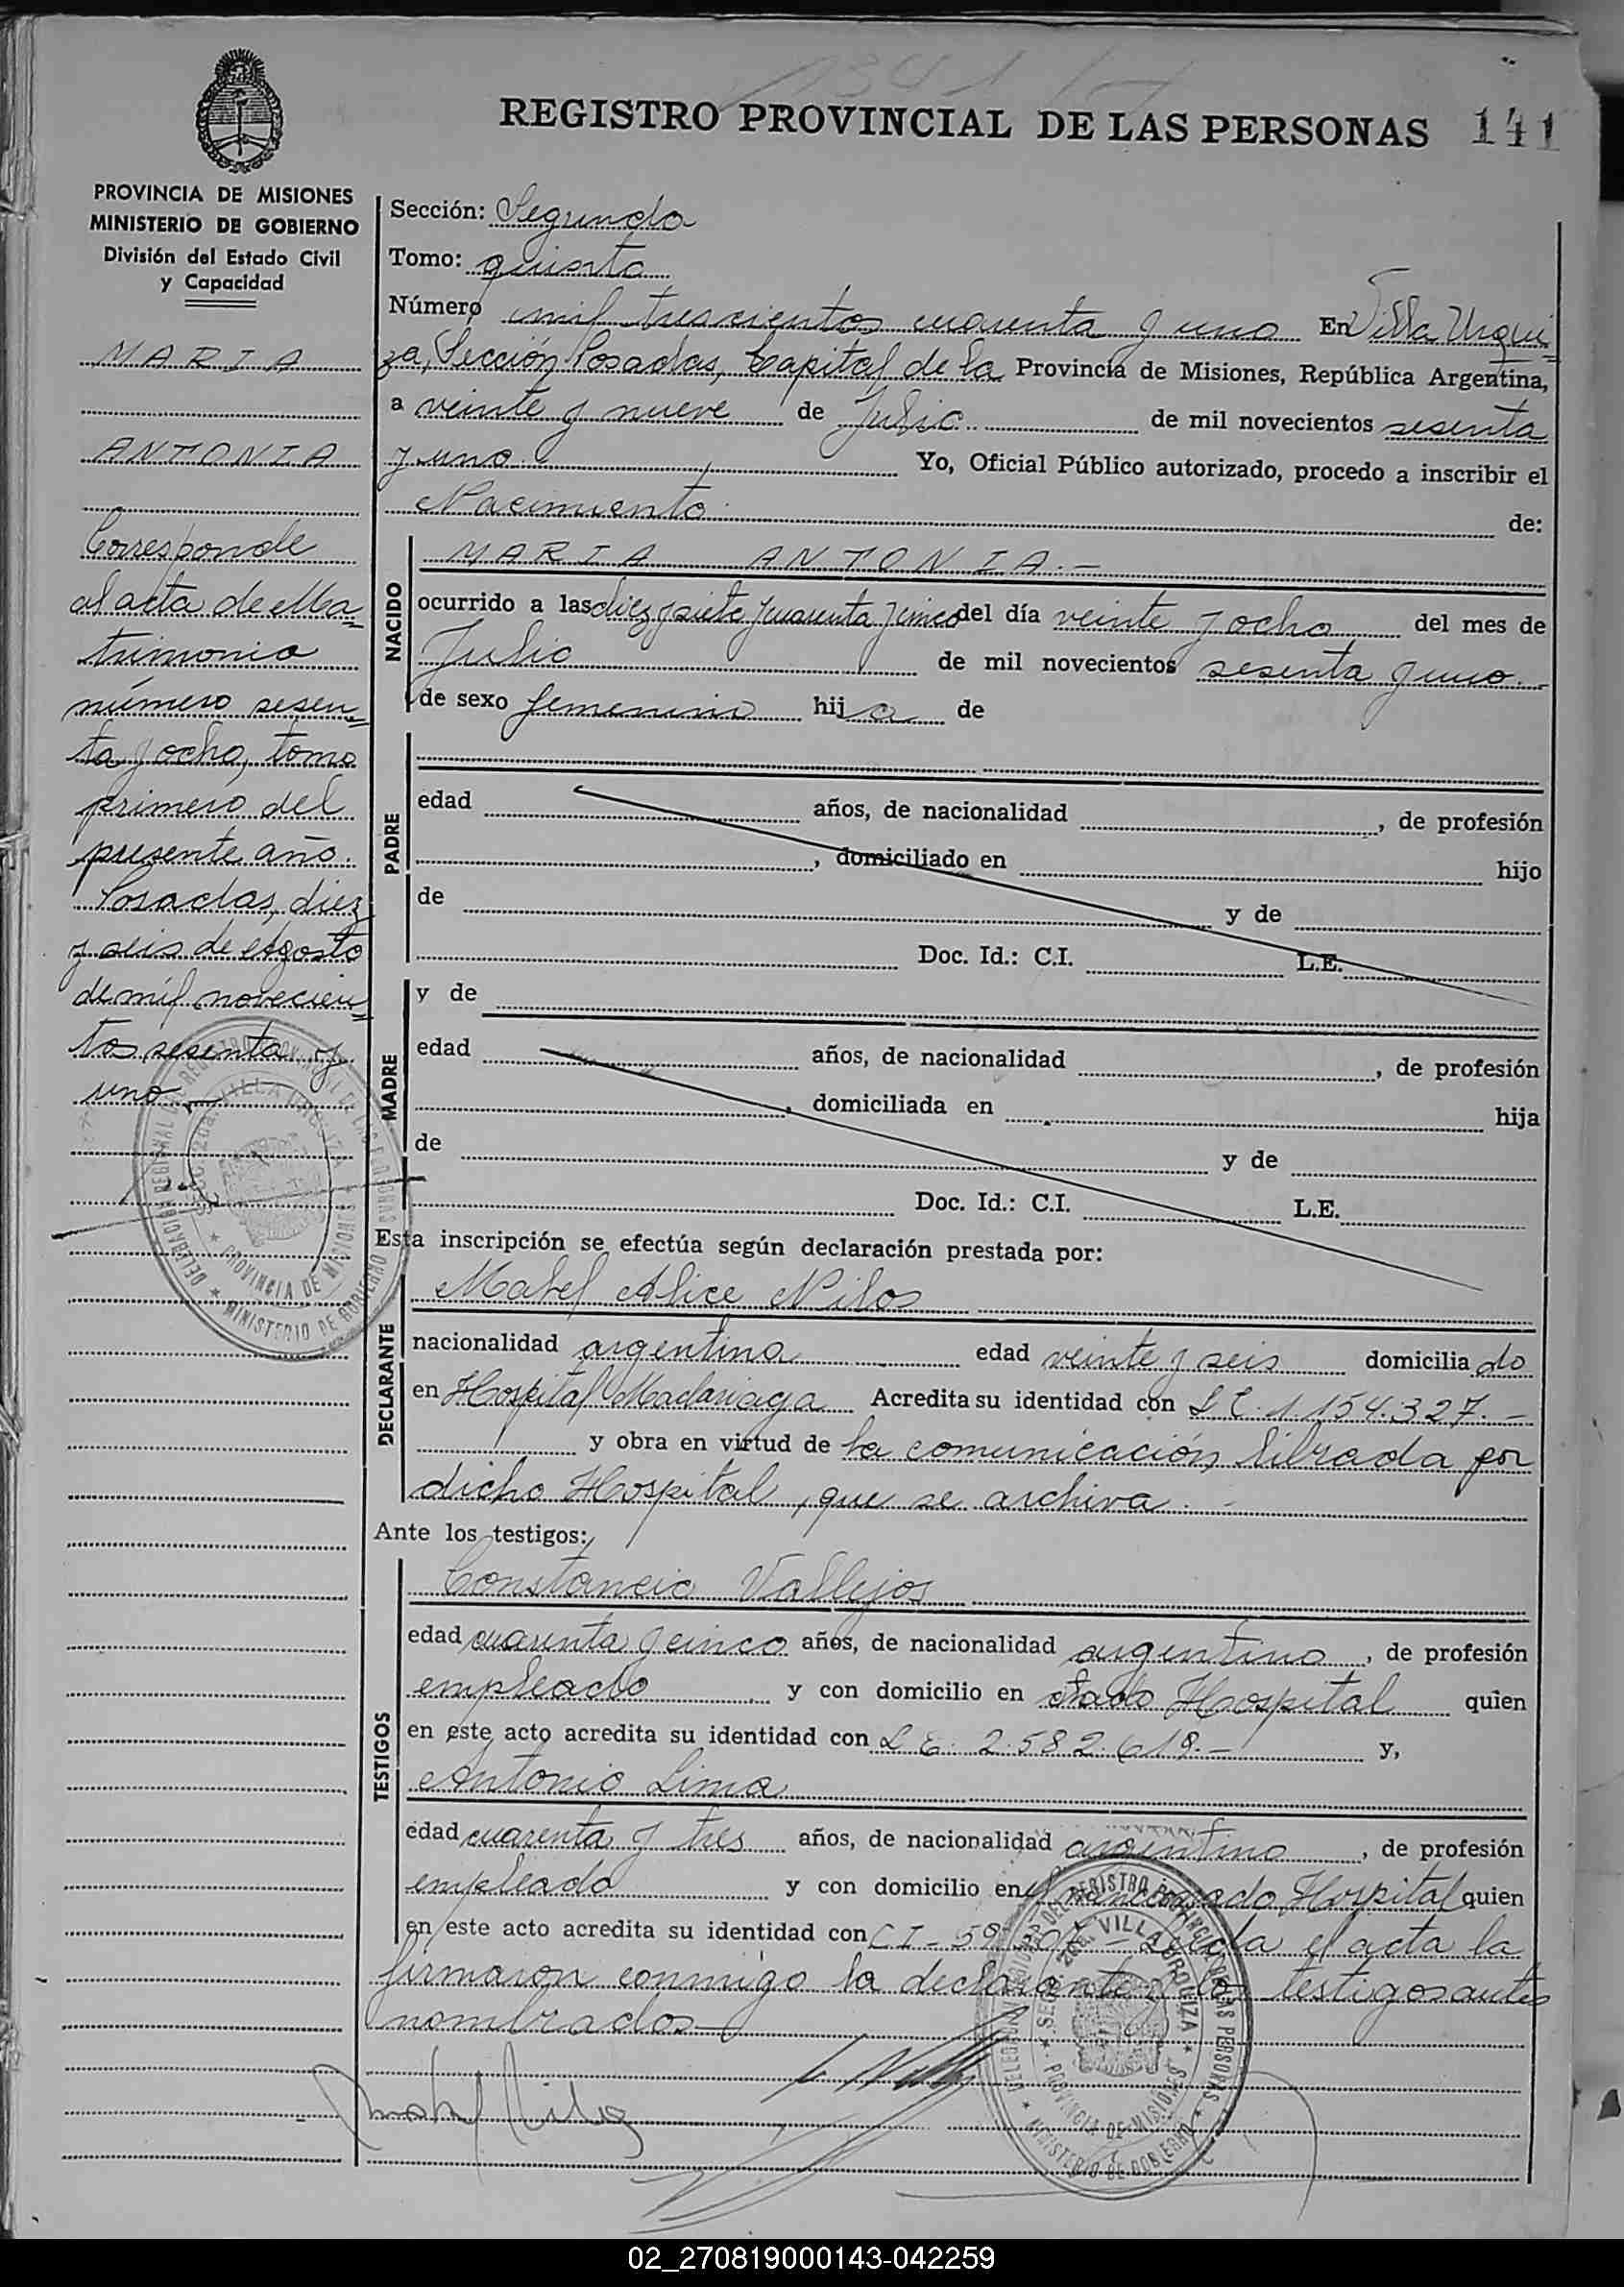 REGISTRO PROVINCIAL DE LAS PERSONAS 141
PROVINCIA DE MISIONES
MINISTERIO DE GOBIERNO
División del Estado Civil
y Capacidad
MARIA
ANTONIA
Corresponde
al acta de Ma=
trimonio
número sesen=
ta y ocho, tomo
primero del
presente año.
Posadas, diez
y seis de Agosto
de mil novecien=
tos sesenta y
uno
Sección: Segunda
Tomo: quinto
Número mil trescientos cuarenta y uno En Villa Urqui=
za, Sección Posadas, Capital de la Provincia de Misiones, República Argentina,
a veinte y nueve de Julio de mil novecientos sesenta
y uno. Yo, Oficial Público autorizado, procedo a inscribir el
Nacimiento de:
NACIDO
MARIA ANTONIA.-
ocurrido a las diez y siete y cuarenta y cinco del día veinte y ocho del mes de
Julio de mil novecientos sesenta y uno.-
de sexo femenino hija de
PADRE
edad años, de nacionalidad , de profesión
, domiciliado en hijo
de y de
Doc. Id.: C.I. L.E.
MADRE
y de
edad años, de nacionalidad , de profesión
, domiciliada en hija
de y de
Doc. Id.: C.I. L.E.
Esta inscripción se efectúa según declaración prestada por:
DECLARANTE
Mabel Alice Nilos
nacionalidad argentina edad veinte y seis domiciliado
en Hospital Madariaga Acredita su identidad con L C. 1.154.327.-
y obra en virtud de la comunicación librada por
dicho Hospital, que se archiva.-
Ante los testigos:
TESTIGOS
Constancio Vallejos
edad cuarenta y cinco años, de nacionalidad argentino, de profesión
empleado y con domicilio en citado Hospital quien
en este acto acredita su identidad con L E. 2.582.619.- y,
Antonio Lima
edad cuarenta y tres años, de nacionalidad argentino, de profesión
empleado y con domicilio en el mencionado Hospital quien
en este acto acredita su identidad con C I - el acta la
firmaron conmigo la declarante y los testigos antes
nombrados
DELEGACION REGIONAL DEL REGISTRO PROVINCIAL DE LAS PERSONAS
SECC. 2da. VILLA URQUIZA
PROVINCIA DE MISIONES
MINISTERIO DE GOBIERNO
DELEGACION REGIONAL DEL REGISTRO PROVINCIAL DE LAS PERSONAS
SECC. 2da. VILLA URQUIZA
PROVINCIA DE MISIONES
MINISTERIO DE GOBIERNO
Mabel Nilos
02_270819000143-042259